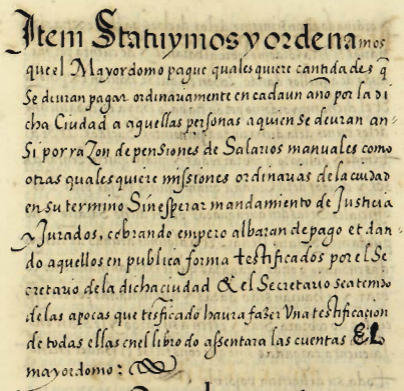 Item Statuymos y ordenamos
que el Mayordomo pague quales quiere cantidades q̃
se deuran pagar ordinariamente en cada un año por la di
cha Ciudad a aquellas personas a quien se deuran an-
si por razon de pensiones de Salarios manuales como
otras quales quiere missiones ordinarias de la ciudad
en su termino Sin esperar mandamiento de Justicia
y Jurados, cobrando empero albaran de pago et dan-
do aquellos en publica forma testificados por el Se
cretario de la dicha ciudad & el Secretario sea tenido
de las apocas que testificado haura fazer Una testificacion
de todas ellas en el libro do assentara las cuentas EL
mayordomo: